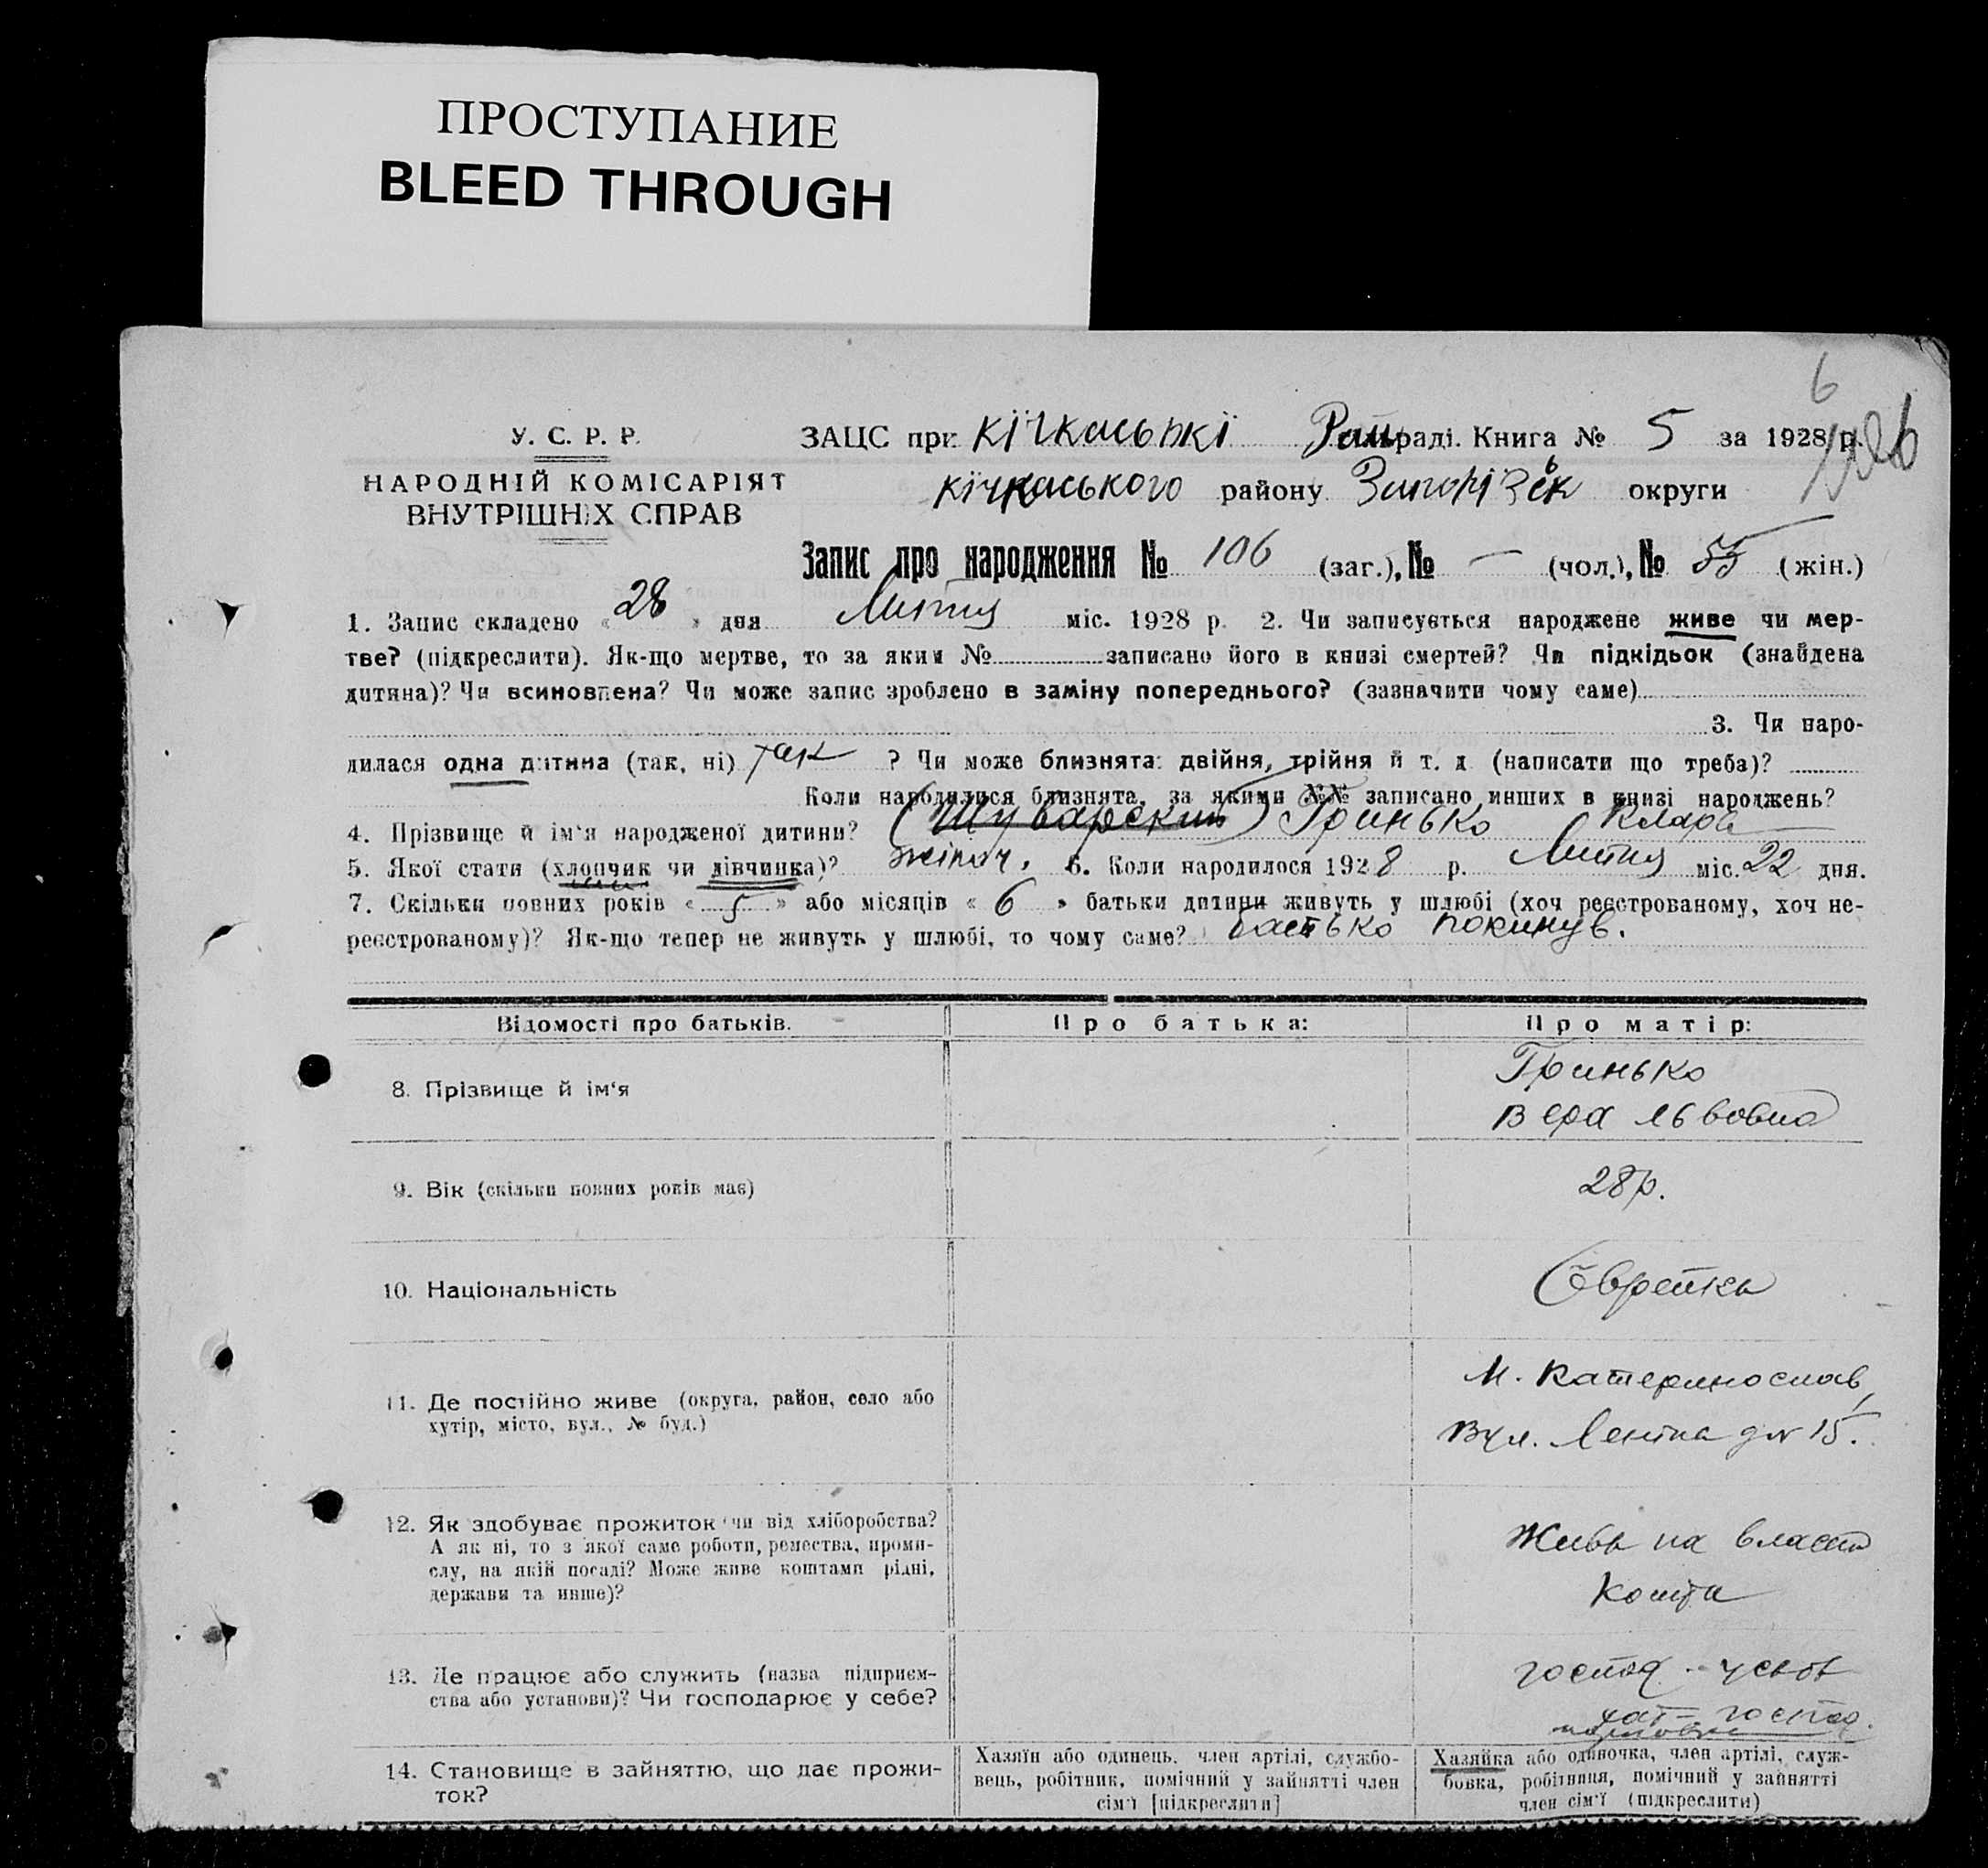 ПРОСТУПАНИЕ
BLEED THROUGH
6
У. С. Р. Р.
НАРОДНІЙ КОМІСАРІЯТ
ВНУТРІШНІХ СПРАВ
ЗАЦС при Кічкаські Рай раді. Книга № 5 за 1928 р.
Кічкаського району округи
Запис про народження № 106 (заг.), № — (чол.), № 55 (жін.)
1. Запис складено « 28 » дня Липня міс. 1928 р. 2. Чи записується народжене живе чи мер-
тве? (підкреслити). Як-що мертве, то за яким № записано його в книзі смертей? Чи підкідьок (знайдена
дитина)? Чи всиновлена? Чи може запис зроблено в заміну попереднього? (зазначити чому саме)
3. Чи наро-
дилася одна дитина (так, ні) так ? Чи може близнята: двійня, трійня й т. д (написати що треба)?
Коли народилися близнята, за якими №№ записано инших в книзі народжень?
4. Прізвище й ім'я народженої дитини? Гринько Клара
5. Якої стати (хлопчик чи дівчинка)? жіноч. 6. Коли народилося 1928 р. Липня міс. 22 дня.
7. Скільки повних років « 5 » або місяців « 6 » батьки дитини живуть у шлюбі (хоч реєстрованому, хоч не-
реєстрованому)? Як-що тепер не живуть у шлюбі, то чому саме? батько покинув.
Відомості про батьків. Про батька: Про матір:
8. Прізвище й ім'я
Гринько
Вера Львовна
9. Вік (скільки повних років має) 28 р.
10. Національність Єврейка
11. Де постійно живе (округа, район, село або
хутір, місто, вул., № буд.)
м. Катеринослав,
вул. Леніна д № 15.
12. Як здобуває прожиток чи від хліборобства?
А як ні, то з якої саме роботи, ремества, проми-
слу, на якій посаді? Може живе коштами рідні,
держави та инше)?
Живе на власні
кошти
13. Де працює або служить (назва підприєм-
ства або установи)? Чи господарює у себе?
господ.
14. Становище в зайняттю, що дає прожи-
ток?
Хазяїн або одинець, член артілі, службо-
вець, робітник, помічний у зайнятті член
сім'ї [підкреслити]
Хазяйка або одиночка, член артілі, служ-
бовка, робітниця, помічний у зайнятті
член сім'ї (підкреслити)